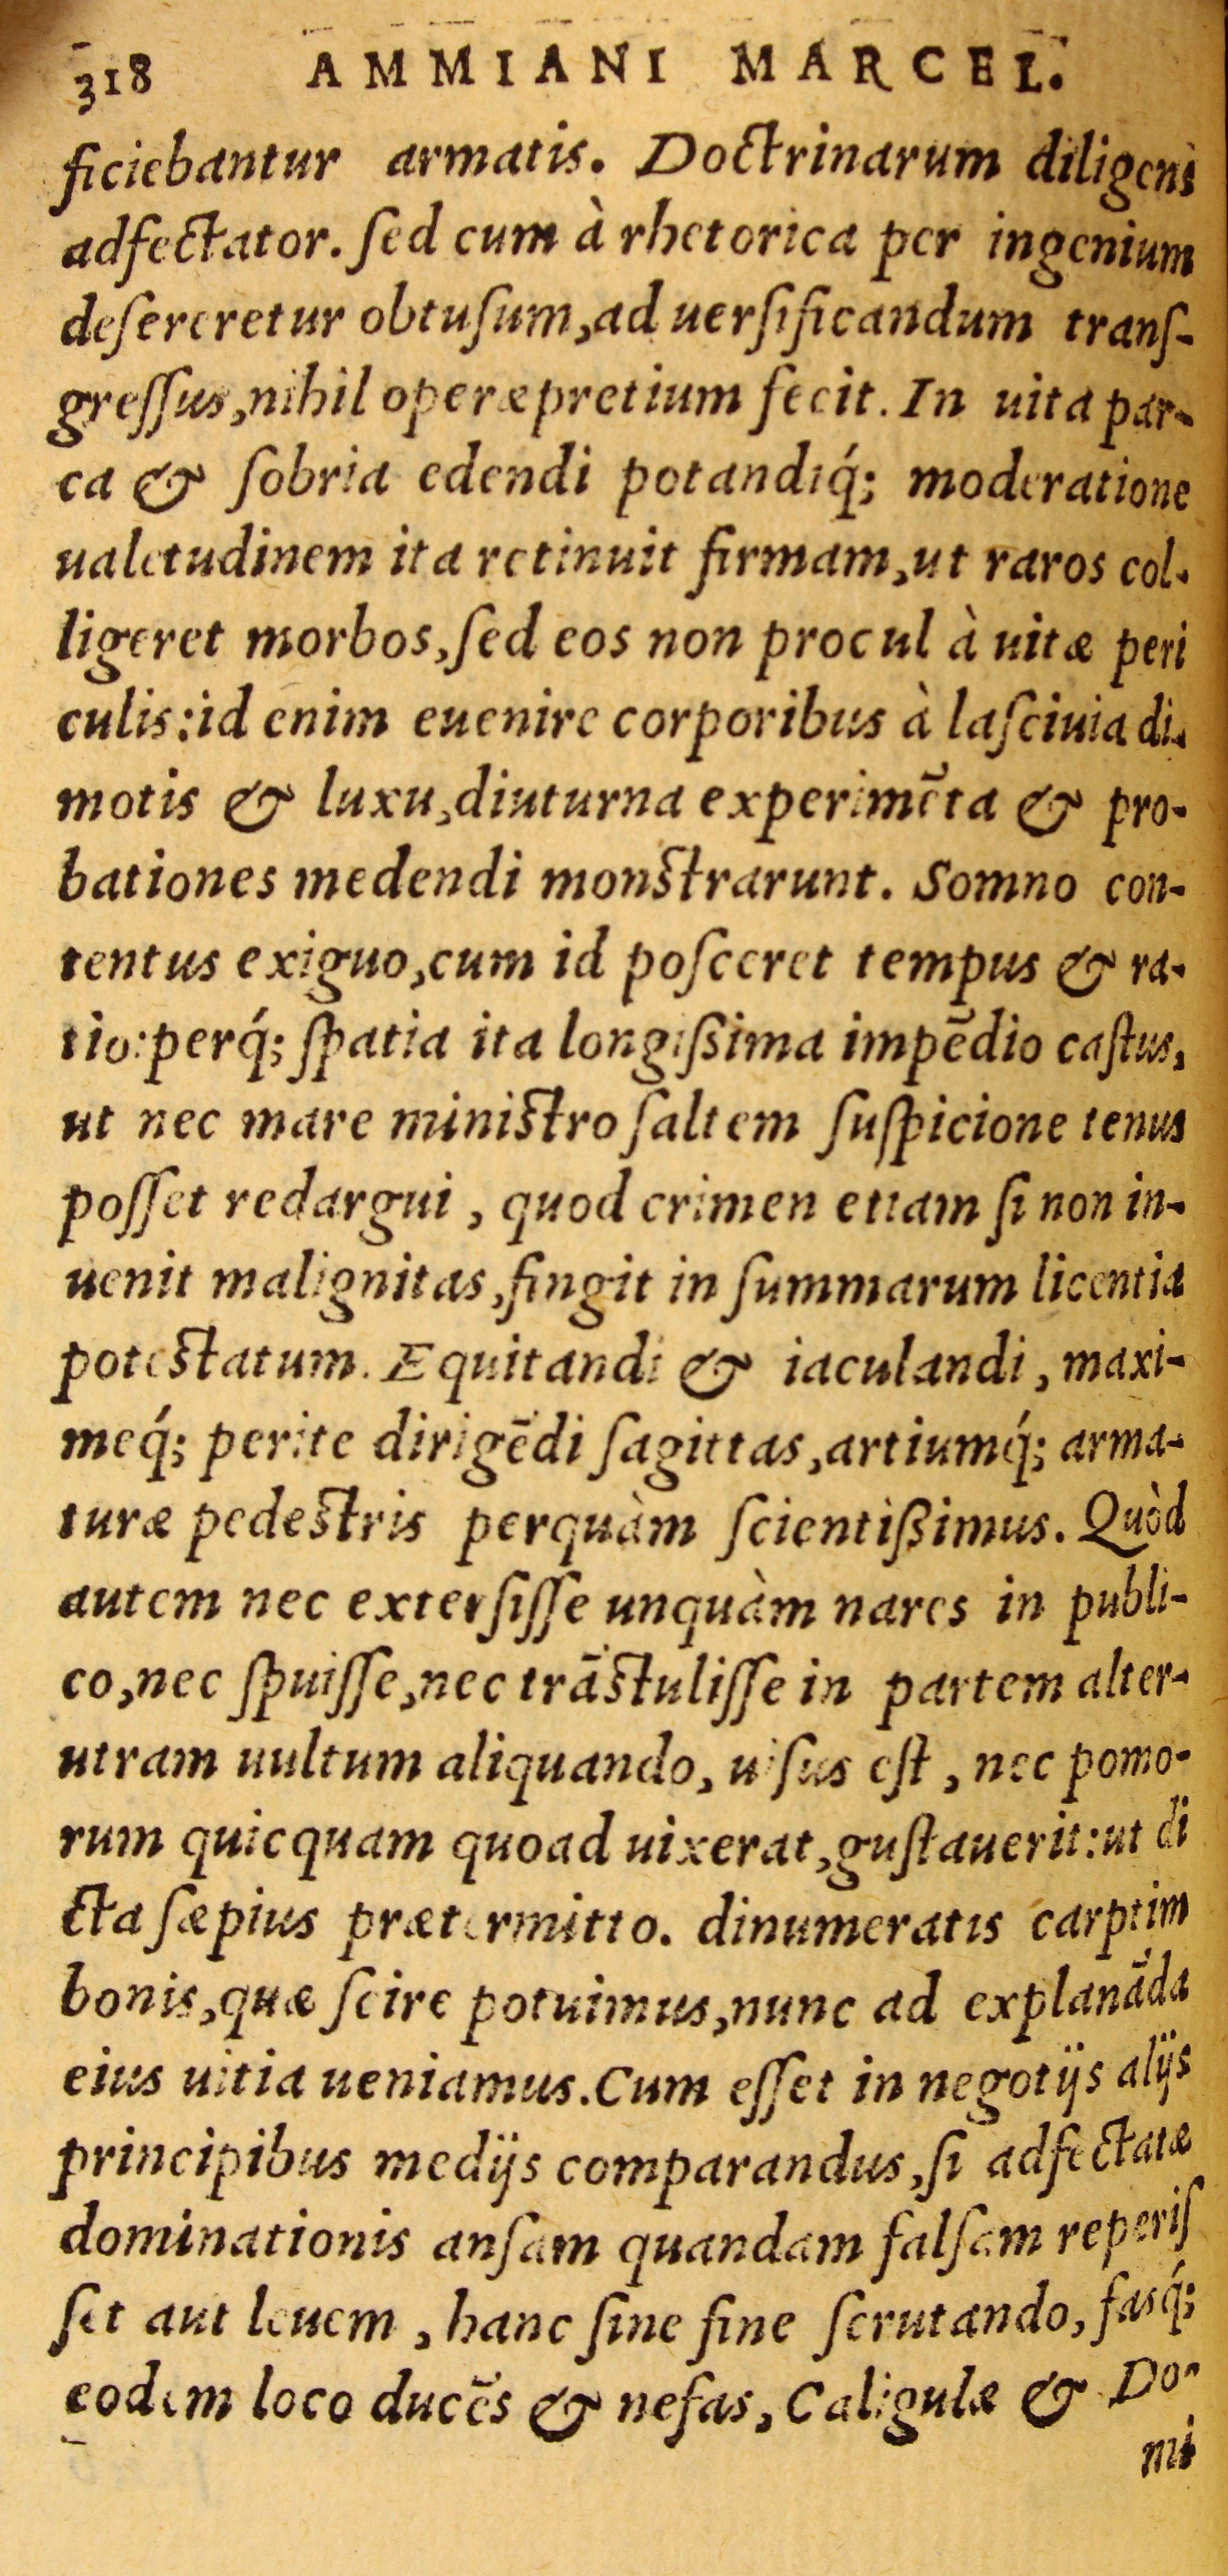 318 AMMIANI MARCEL.
ficiebantur armatis. Doctrinarum diligens
adfectator. ſed cum à rhetorica per ingenium
deſereretur obtuſum,ad uerſificandum tranſ-
greſſus,nihil operæpretium fecit. In uita par-
ca & ſobria edendi potandiq́; moderatione
ualetudinem ita retinuit firmam,ut raros col-
ligeret morbos,ſed eos non procul à uitæ peri
culis:id enim euenire corporibus à laſciuia di-
motis & luxu,diuturna experimẽta & pro-
bationes medendi monſtrarunt. Somno con-
tentus exiguo,cum id poſceret tempus & ra-
tio:perq́; ſpatia ita longißima impẽdio caſtus,
ut nec mare miniſtro ſaltem ſuſpicione tenus
poſſet redargui, quod crimen etiam ſi non in-
uenit malignitas,fingit in ſummarum licentia
poteſtatum. Equitandi & iaculandi, maxi-
meq́; perite dirigẽdi ſagittas,artiumq́; arma-
turæ pedeſtris perquàm ſcientißimus. Quòd
autem nec exterſiſſe unquàm nares in publi-
co,nec ſpuiſſe,nec trãſtuliſſe in partem alter-
utram uultum aliquando, uiſus eſt, nec pomo-
rum quicquam quoad uixerat,guſtauerit:ut di
cta ſæpius prætermitto. dinumeratis carptim
bonis,quæ ſcire potuimus,nunc ad explanãda
eius uitia ueniamus.Cum eſſet in negotijs alijs
principibus medijs comparandus,ſi adfectatæ
dominationis anſam quandam falſam reperiſ
ſet aut leuem, hanc ſine fine ſcrutando, fasq́;
eodem loco ducẽs & nefas, Caligulæ & Do-
mi